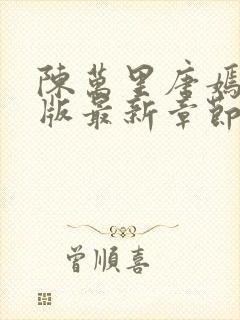 陳萬里唐嫣
版最新章節
曾順喜